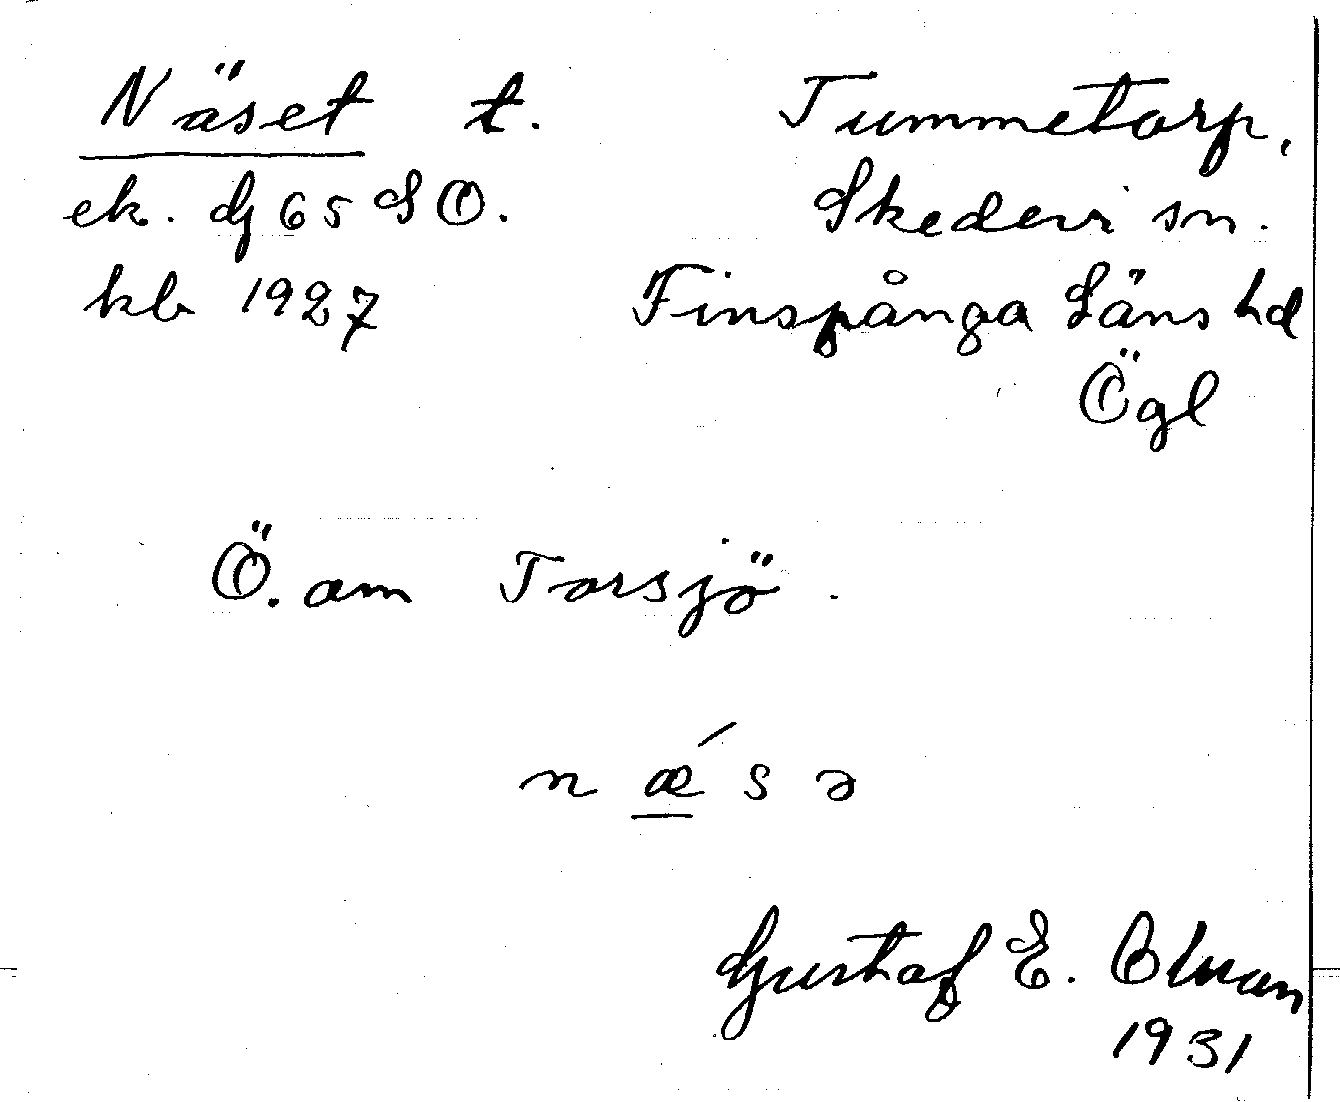 Näset t. Tummetorp,
ek. G 65 SO. Skedevi sn.
kb 1927 Finspånga Läns hd
Ögl
Ö. om Torsjö.
n ǽ s ə
Gustaf E. Olman
1931